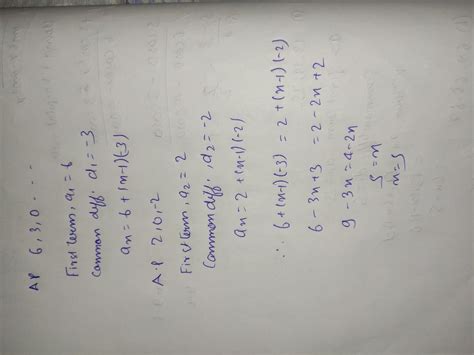 AP 6, 3, 0 . . . .
First term, a₁ = 6
Common diff. d₁ = -3
an = 6 + (n-1)(-3)
A.P 2, 0, -2
First term, a₂ = 2
Common diff., a₂ = -2
an = 2 + (n-1)(-2)
∴ 6 + (n-1)(-3) = 2 + (n-1)(-2)
6 - 3n + 3 = 2 - 2n + 2
9 - 3n = 4 - 2n
5 = n
n = 5